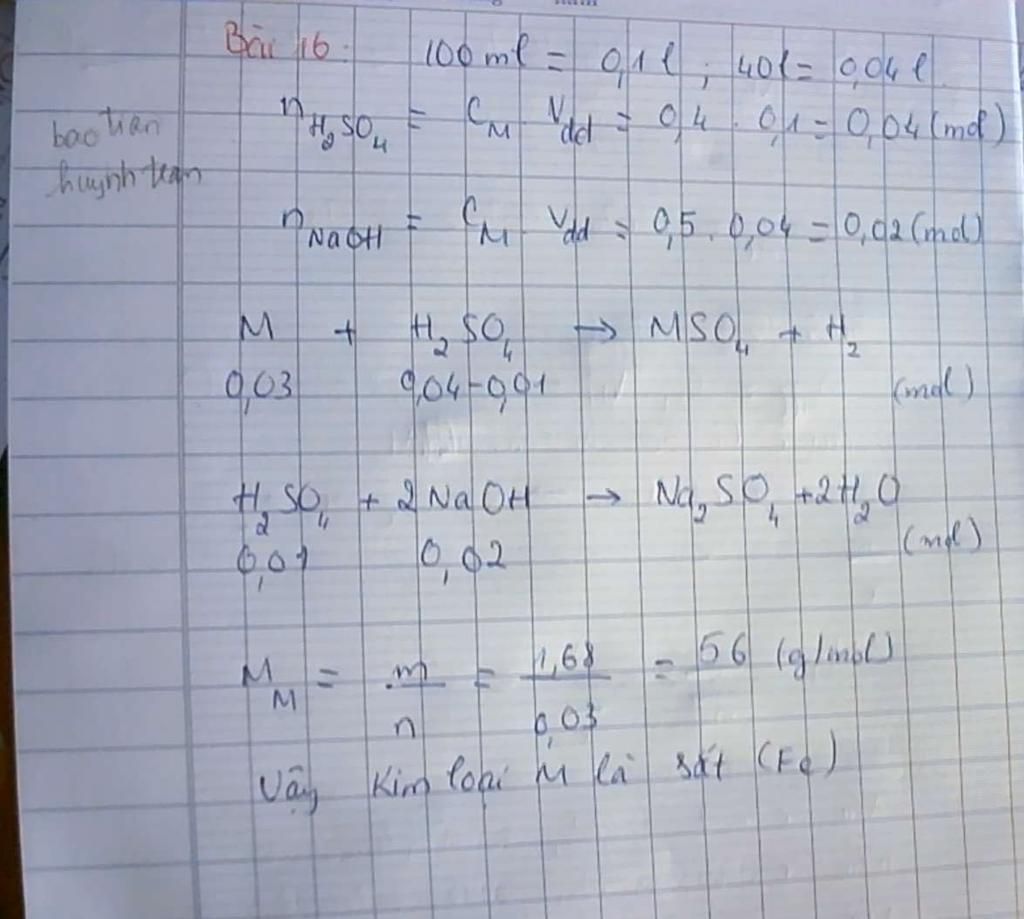 Bài 16: 100 ml = 0,1 l ; 40 l = 0,04 l
n H₂SO₄ = C_M . V_dd = 0,4 . 0,1 = 0,04 (mol)
bao tran
huynh tran
n NaOH = C_M . V_dd = 0,5 . 0,04 = 0,02 (mol)
M + H₂SO₄ → MSO₄ + H₂
0,03 0,04-0,01 (mol)
H₂SO₄ + 2NaOH → Na₂SO₄ + 2H₂O
0,01 0,02 (mol)
M_M = m/n = 1,68/0,03 = 56 (g/mol)
Vậy kim loại M là sắt (Fe)